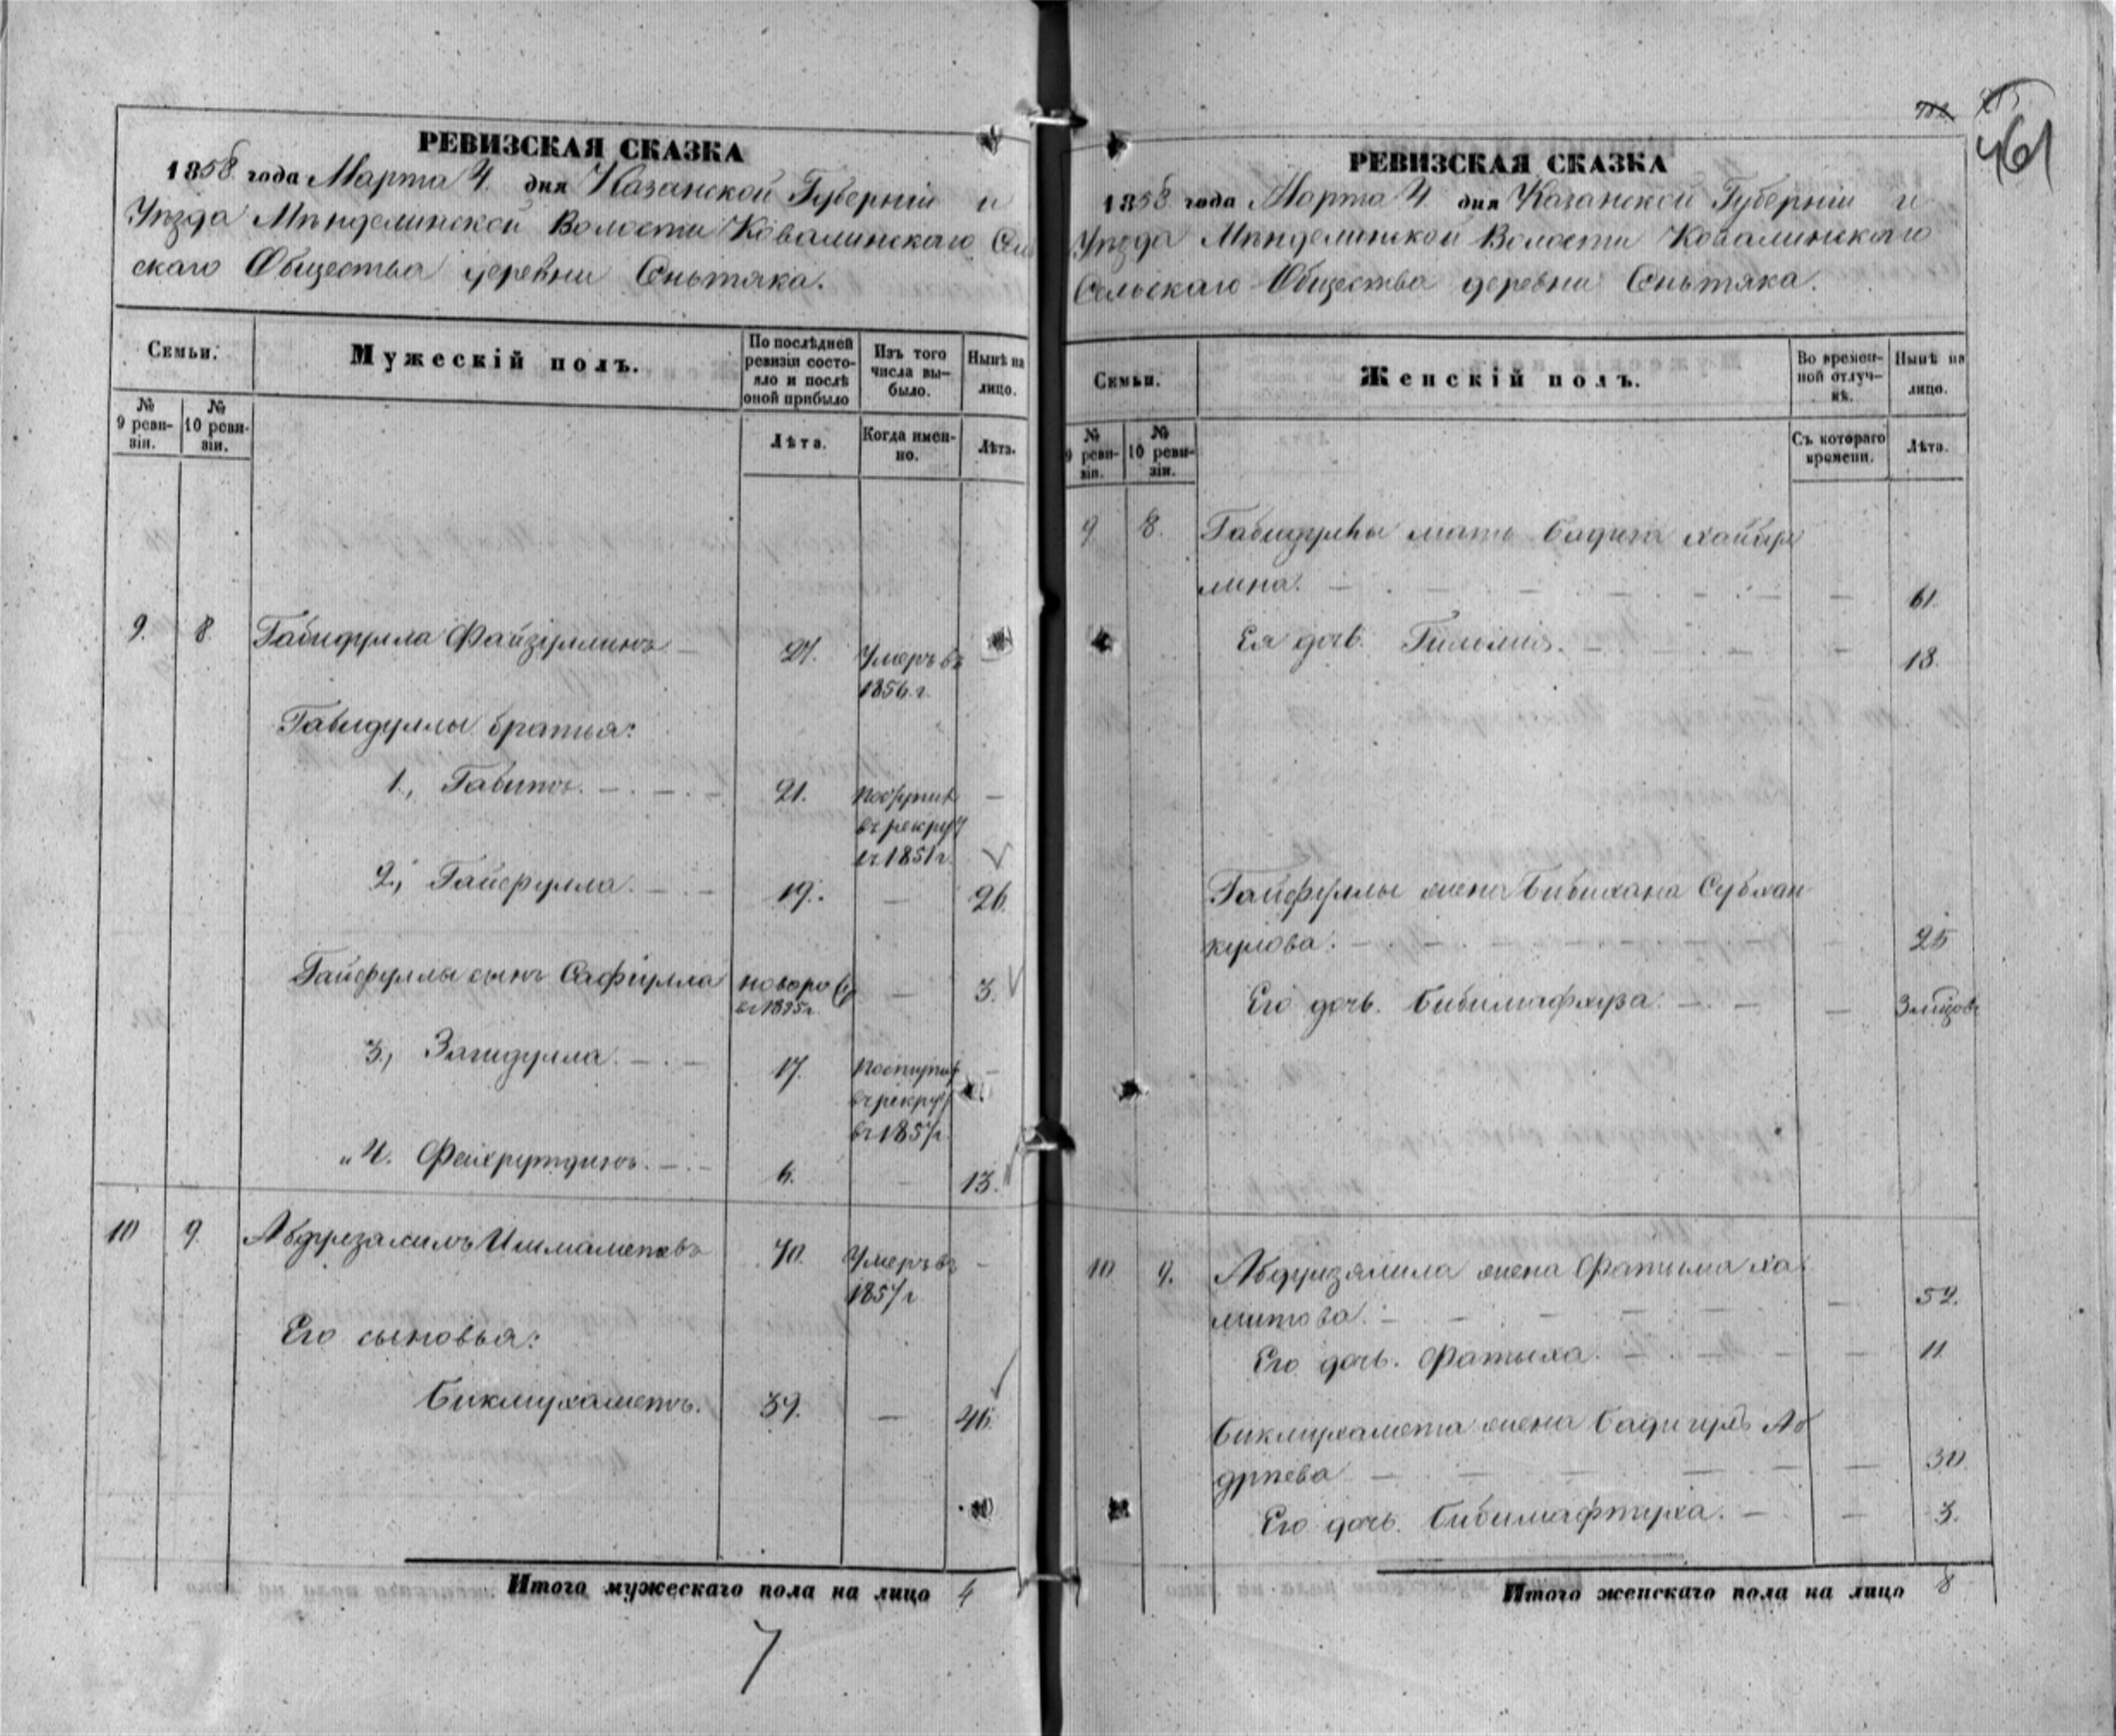 РЕВИЗСКАЯ СКАЗКА
1858 года Марта 4 дня Казанской Губерніи и
Уѣзда Мѣнделинской Волости Ковалинскаго Сель
скаго Общества деревни Сньтяка.
Семьи.
Мужескій полъ.
По послѣдней
ревизіи состо-
яло и послѣ
оной прибыло
Изъ того
числа вы-
было.
Нынѣ на
лицо.
№
9 реви-
зіи.
№
10 реви-
зіи.
Лѣта.
Когда имен-
но.
Лѣта.
9. 8 Габидулла Файзуллинъ — 27. Умеръ въ —
1856 г.
Габидуллы братья:
1., Габитъ. — . — . — 21. поступив —
въ рекру
въ 1851 г.
2., Гайфулла. — . — 19. — 26.
Гайфуллы сынъ Сафіулла новоро — 3.
въ 1855 г.
3., Загидулла. — . — 17. поступив —
въ рекру
въ 1857 г.
„4. Фейхрутдинъ. — . — 6. — 13.
10 9. Абдулзалилъ Ишмаметевъ 70. Умеръ въ —
1857 г.
Его сыновья:
Бикмухаметъ. 39. — 46.
Итого мужескаго пола на лицо 4
7
461
РЕВИЗСКАЯ СКАЗКА
1858 года Марта 4 дня Казанской Губерніи и
Уѣзда Мѣнделинской Волости Ковалинскаго
Сельскаго Общества деревни Сньтяка.
Семьи.
Женскій полъ.
Во времен-
ной отлуч-
кѣ.
Нынѣ на
лицо.
№
9 реви-
зіи.
№
10 реви-
зіи.
Съ котораго
времени.
Лѣта.
9 8. Габидуллы мать Бадига Хайбул
лина. — 61.
Ея дочь. — 18.
Гайфуллы жена Бибихана Субхан
кулова. — 25
Его дочь. Бибимафхуза. — . — — 3 мѣсяцовъ
10 9. Абдулзялила жена Фатыма Ха
митова. — 52.
Его дочь. Фатыха. — 11
Бикмухамета жена Бадигулъ Аб
дулова — 30.
Его дочь. Бибимафтуха. — — 3.
Итого женскаго пола на лицо 8